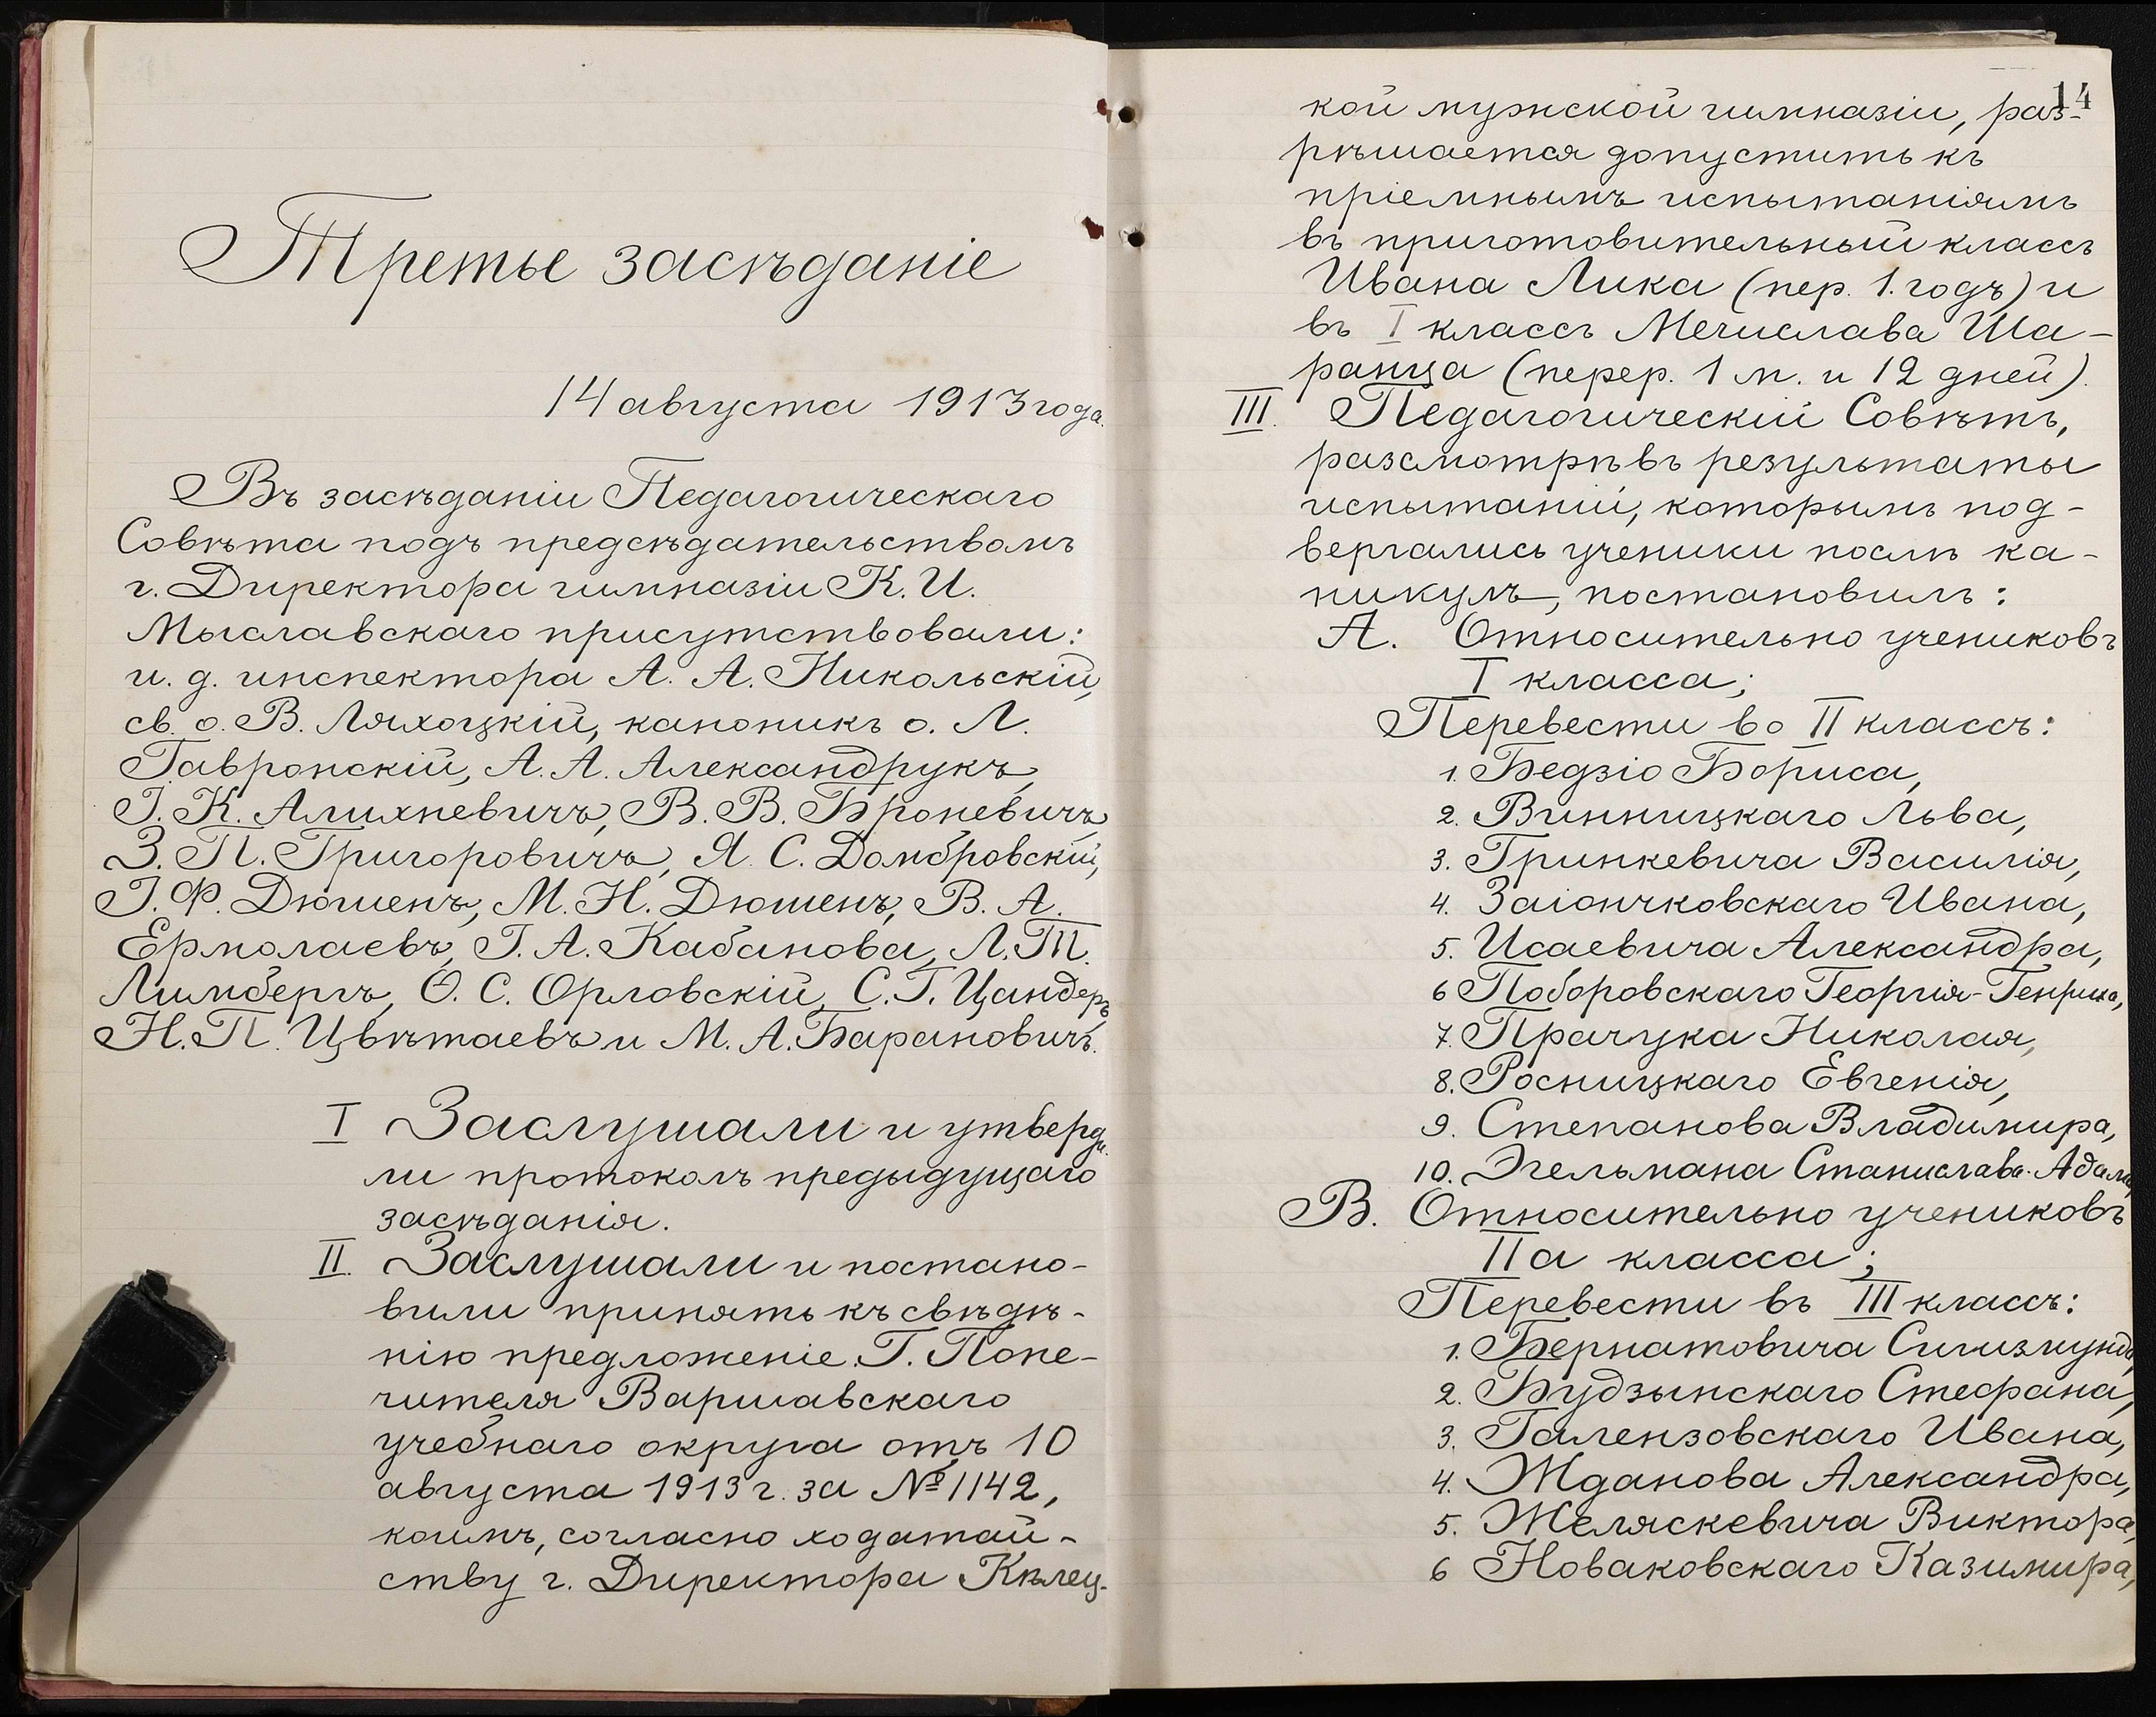 Третье засѣданіе
14 августа 1913 года.
Въ засѣданіи Педагогическаго
Совѣта подъ предсѣдательствомъ
г. Директора гимназіи К. И.
Мыславскаго присутствовали:
и. д. инспектора А. А. Никольскій,
св. о. В. Ляхоцкій, каноникъ о. Л.
Гавронскій, А. А. Александрукъ,
І. К. Алихневичъ, В. В. Броневичъ,
З. П. Григоровичъ, Я. С. Домбровскій,
І. Ф. Дюшенъ, М. Н. Дюшенъ, В. А.
Ермолаевъ, Г. А. Кабанова, Л. Т.
Лимбергъ, Ѳ. С. Орловскій, С. Г. Цандеръ,
Н. П. Цвѣтаевъ и М. А. Барановичъ.
I Заслушали и утверди-
ли протоколъ предыдущаго
засѣданія.
II. Заслушали и постано-
вили принять къ свѣдѣ-
нію предложеніе Г. Попе-
чителя Варшавскаго
учебнаго округа отъ 10
августа 1913 г. за № 1142,
коимъ, согласно ходатай-
ству г. Директора Кѣлец-
14
кой мужской гимназіи, раз-
рѣшается допустить къ
пріемнымъ испытаніямъ
въ приготовительный классъ
Ивана Лика (пер. 1. годъ) и
въ I классъ Мечислава Ша-
ранца (перер. 1 м. и 12 дней).
III. Педагогическій Совѣтъ,
разсмотрѣвъ результаты
испытаній, которымъ под-
вергались ученики послѣ ка-
никулъ, постановилъ:
А. Относительно учениковъ
I класса;
Перевести во II классъ:
1. Бедзіо Бориса,
2. Винницкаго Льва,
3. Гринкевича Василія,
4. Заіончковскаго Ивана,
5. Исаевича Александра,
6 Поборовскаго Георгія-Генриха,
7. Прачука Николая,
8. Росницкаго Евгенія,
9. Степанова Владимира,
10. Эгельмана Станислава-Адама
В. Относительно учениковъ
IIа класса;
Перевести въ III классъ:
1. Бернатовича Сигизмунда,
2. Будзынскаго Стефана,
3. Галензовскаго Ивана,
4. Жданова Александра,
5. Желяскевича Виктора,
6 Новаковскаго Казимира,